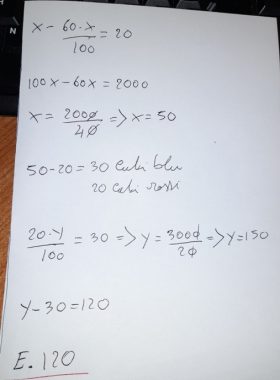 x - 60·x/100 = 20
100x - 60x = 2000
x = 2000/40 => x = 50
50 - 20 = 30 cubi blu
20 cubi rossi
20·y/100 = 30 => y = 3000/20 => y = 150
y - 30 = 120
E. 120